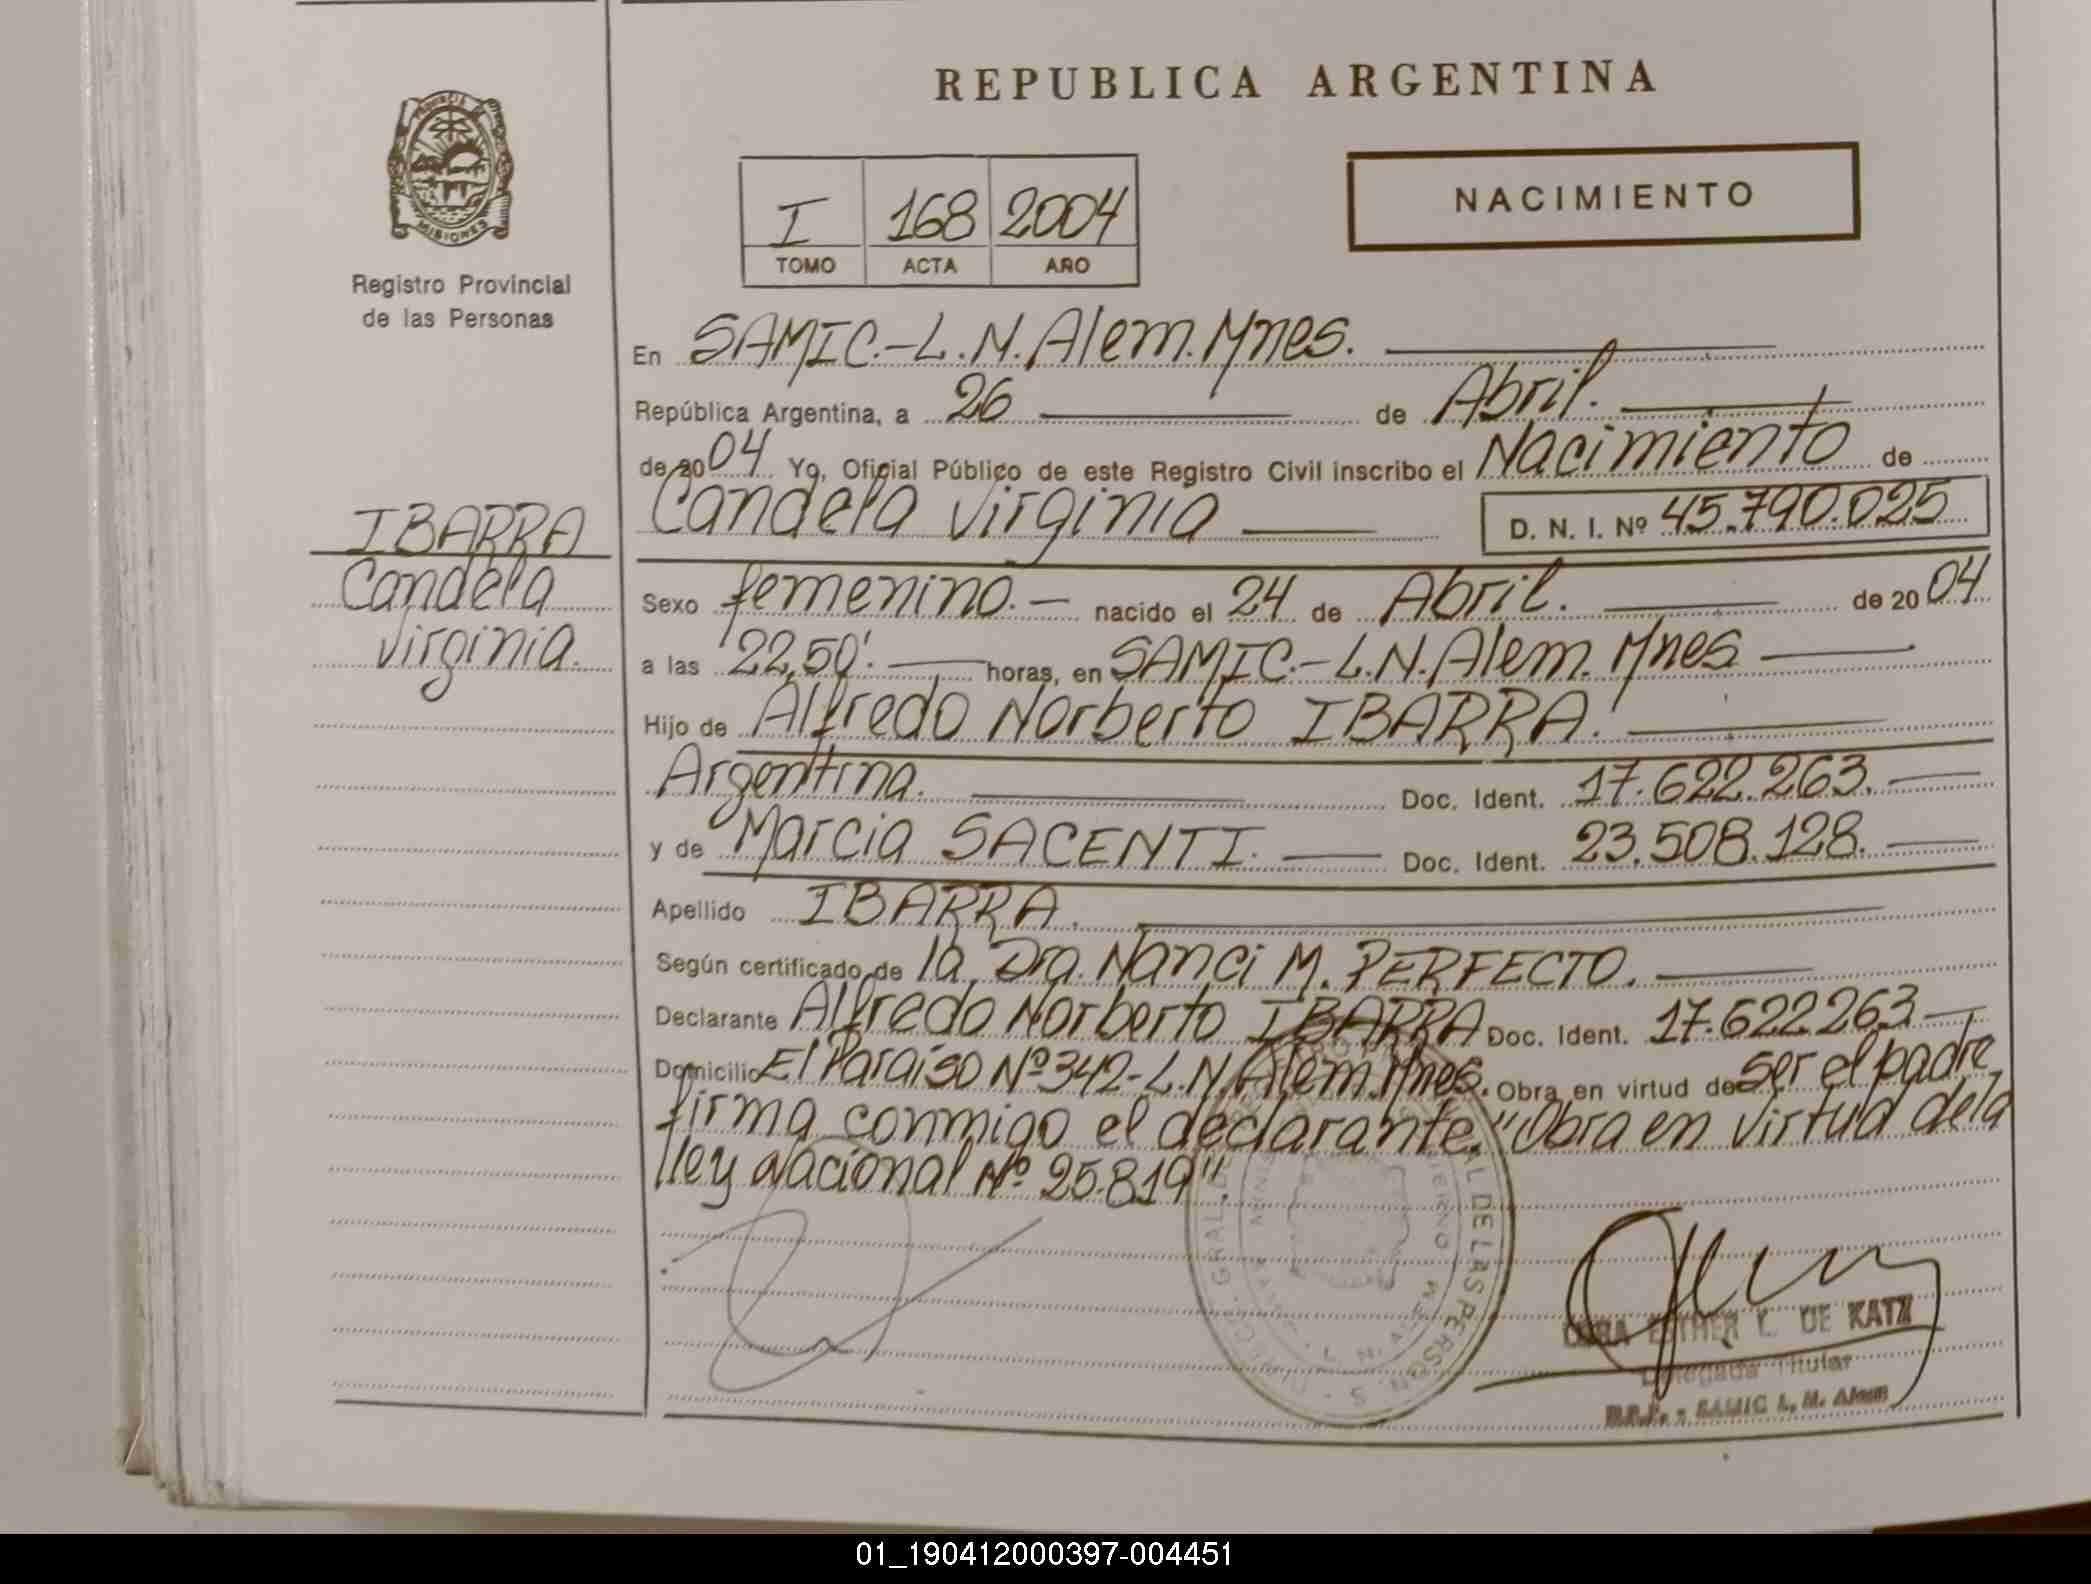 REPUBLICA ARGENTINA
PROVINCIA DE MISIONES
Registro Provincial
de las Personas
I 168 2004
TOMO ACTA AÑO
NACIMIENTO
En SAMIC.-L.N.Alem.Mnes.
República Argentina, a 26 de Abril.
de 2004 Yo, Oficial Público de este Registro Civil inscribo el Nacimiento de
Candela Virginia D. N. I. Nº 45.790.025
IBARRA
Candela
Virginia.
Sexo femenino.- nacido el 24 de Abril. de 2004
a las 22,50'. horas, en SAMIC.-L.N.Alem. Mnes
Hijo de Alfredo Norberto IBARRA.
Argentina. Doc. Ident. 17.622.263.
y de Marcia SACENTI. Doc. Ident. 23.508.128.
Apellido IBARRA.
Según certificado de la Dra. Nanci M. PERFECTO.
Declarante Alfredo Norberto IBARRA Doc. Ident. 17.622.263
Domicilio El Paraíso Nº 342-L.N.Alem.Mnes. Obra en virtud de ser el padre,
firma conmigo el declarante. "Obra en virtud de la
lley Nacional Nº 25.819".
ESTHER L. DE KATZ
Delegada Titular
SAMIC L. N. Alem
01_190412000397-004451